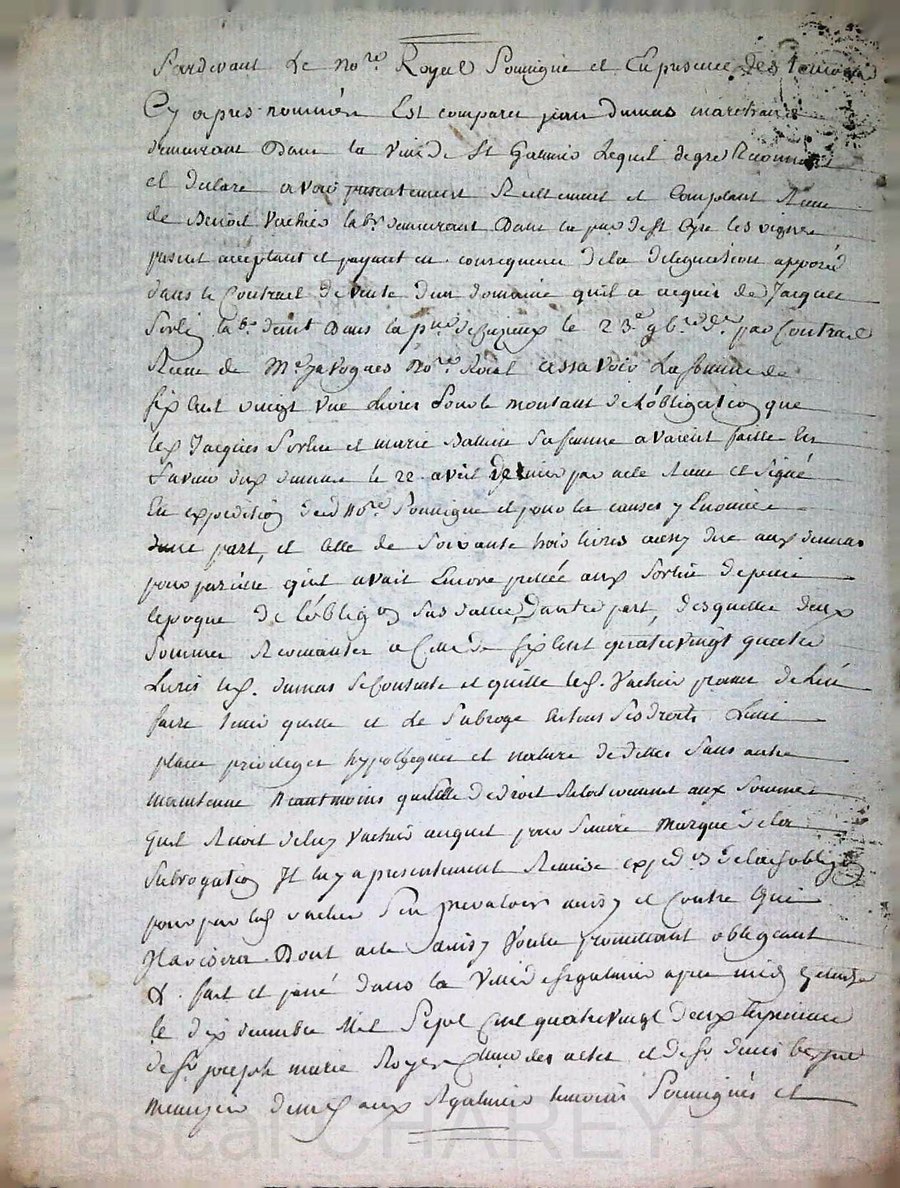 Pardevant Le no.re Royal Soussigné et En presence des temoins
Cy apres nommés Est comparu jean dumas marchand
demeurant Dans la Ville de St Galmier Lequel de gré Reconnait
et declare avoir presentement Reellement et Comptant Receu
de Benoit Vachier lab.r demeurant Dans la par de st Cyr les vignes
present acceptant et payant en consequence de la delegation apposée
dans le Contract de vente d'un domaine qu'il a acquis de Jacques
Sorlin lab.r dem.t Dans la p.sse de le 23.e 9b.re d.er par Contract
Receu de M.e Javogues No.re Roial assavoir La somme de
six Cent vingt une Livres Pour le montant de l'obligation que
les Jacques Sorlin et marie sa femme avaient faitte En
faveur dud dumas le 22 avril dernier par acte Receu et Signé
En expedition dud no.re Soussigné et pour les causes y Enoncées
d'une part, et Celle de Soixante trois livres aussy due aud dumas
pour pareille qu'il avait Encore prettée aud Sorlin depuis
l'epoque de l'oblig.on susdattée, d'autre part, desquelles deux
sommes Revenantes a Celle de six Cent quatre vingt quatre
Livres led. dumas se Contente et quitte led. Vachier promet de L'en
faire tenir quitte et le Subroge En tous ses droits Lieu
place privileges hypotheques et nature de dettes Sans autre
maintenue Neantmoins que Celle de droit Relativement aux Sommes
qu'il Recoit dud Vachier auquel pour Seure Marque de la
subrogation Il luy a presentement Remise exped.on de la d oblig.on
pour par led vachier S'en prevaloir ainsy et Contre Qui
Il avisera. Dont acte ainsy Voulu promettant obligeant
&. fait et passé dans la Ville de st galmier apres midy
le dix decembre Mil Sept Cent quatre vingt deux En presence
de Sr joseph marie Royer des actes et de Sr denis
menuisier dem.t aud St galmier temoins Soussignés et
Pascal CHAREYRON